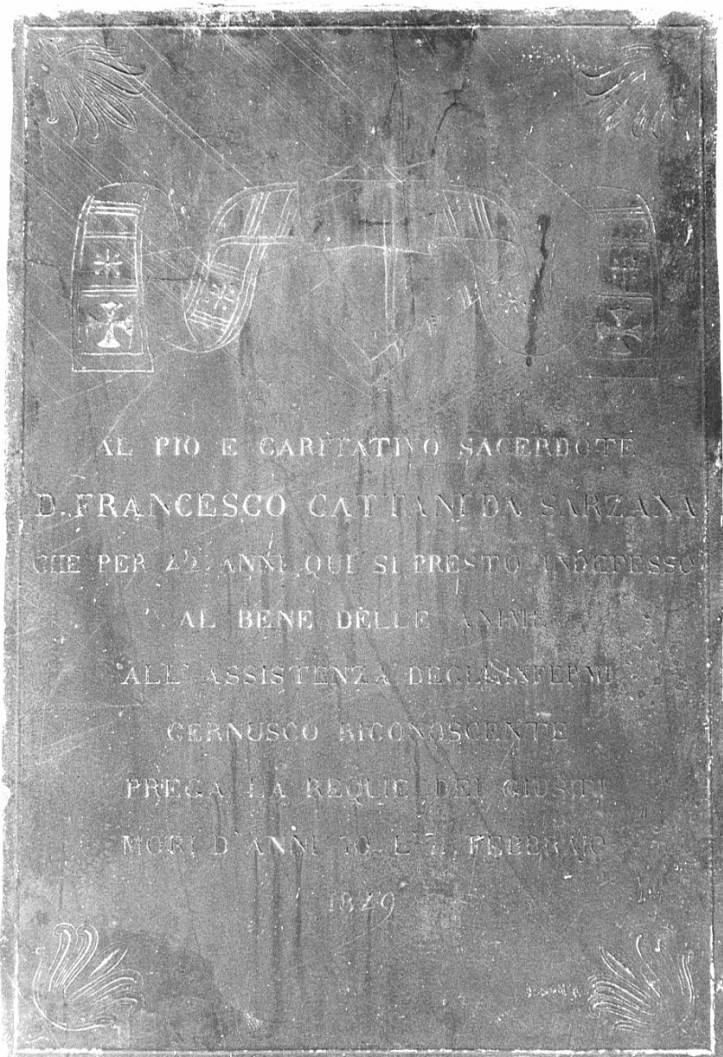 AL PIO E CARITATIVO SACERDOTE
D. FRANCESCO CATTANI DA SARZANA
CHE PER ANNI QUI SI PRESTO INDEFESSO
AL BENE DELLE ANIME
ALL' ASSISTENZA DEGLI INFERMI
CERNUSCO RICONOSCENTE
PREGA LA REQUIE DEI GIUSTI
MORI D'ANNI 70 FEBBRAIO
1849